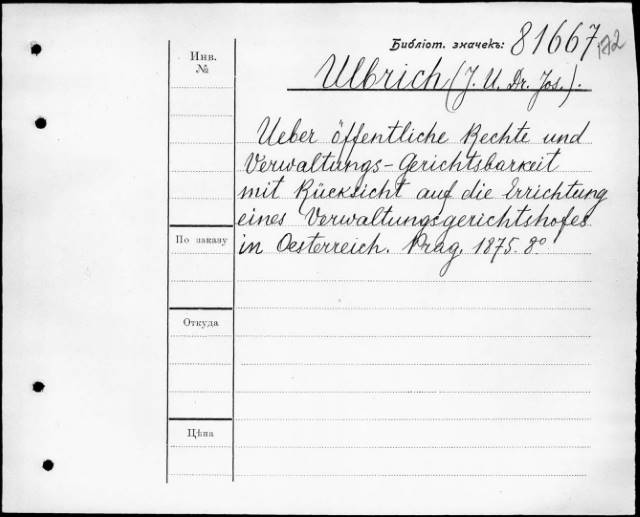 Библіот. значекъ: 81667
Инв.
№
Ulbrich (J. U. Dr. Jos.).
Ueber öffentliche Rechte und
Verwaltungs-Gerichtsbarkeit
mit Rücksicht auf die Errichtung
eines Verwaltungsgerichtshofes
in Oesterreich. Prag, 1875. 8°
По заказу
Откуда
Цѣна